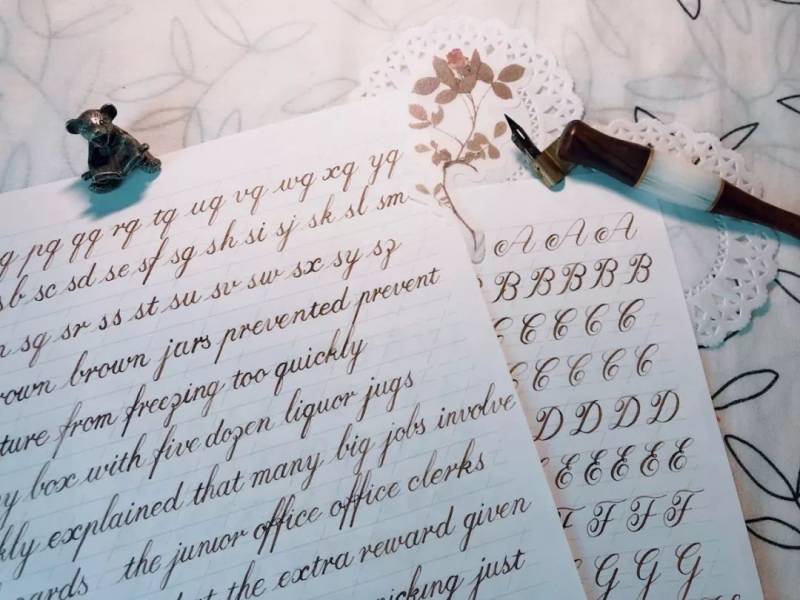 pq qq rq tq uq vq wq xq yq
sb sc sd se sf sg sh si sj sk sl sm
sq sr ss st su sv sw sx sy sz
brown jars prevented prevent
from freezing too quickly
box with five dozen liquor jugs
explained that many big jobs involve
the junior office office clerks
the extra reward given
just
A A A
B B B B B
C C C C C
C C C C C
D D D D
E E E E E
F F F F
G G G